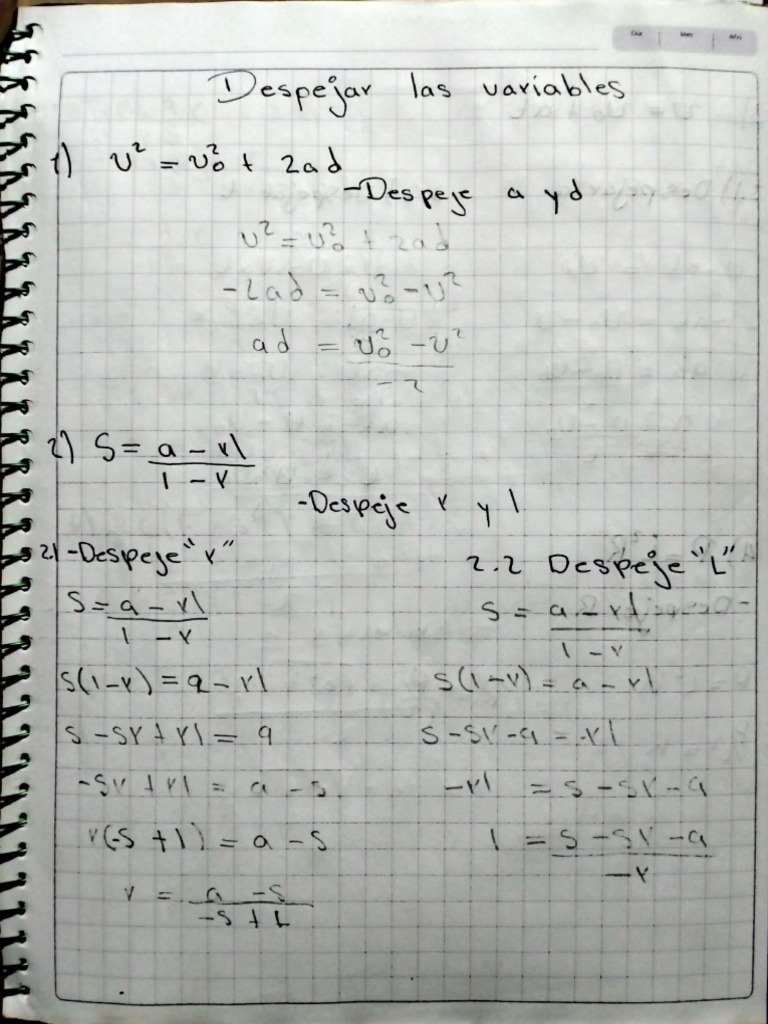 Despejar las variables
1) v² = v₀² + 2ad
-Despeje a y d
v² = v₀² + 2ad
-2ad = v₀² - v²
ad = v₀² - v² / -2
2) S = a - rl / 1 - r
-Despeje r y l
2.1 -Despeje "r"
S = a - rl / 1 - r
s(1-r) = a - rl
s - sr + rl = a
-sr + rl = a - s
r(-s + l) = a - s
r = a - s / -s + L
2.2 Despeje "L"
S = a - rl / 1 - r
s(1-r) = a - rl
s - sr - a = -rl
-rl = s - sr - a
l = s - sr - a / -r